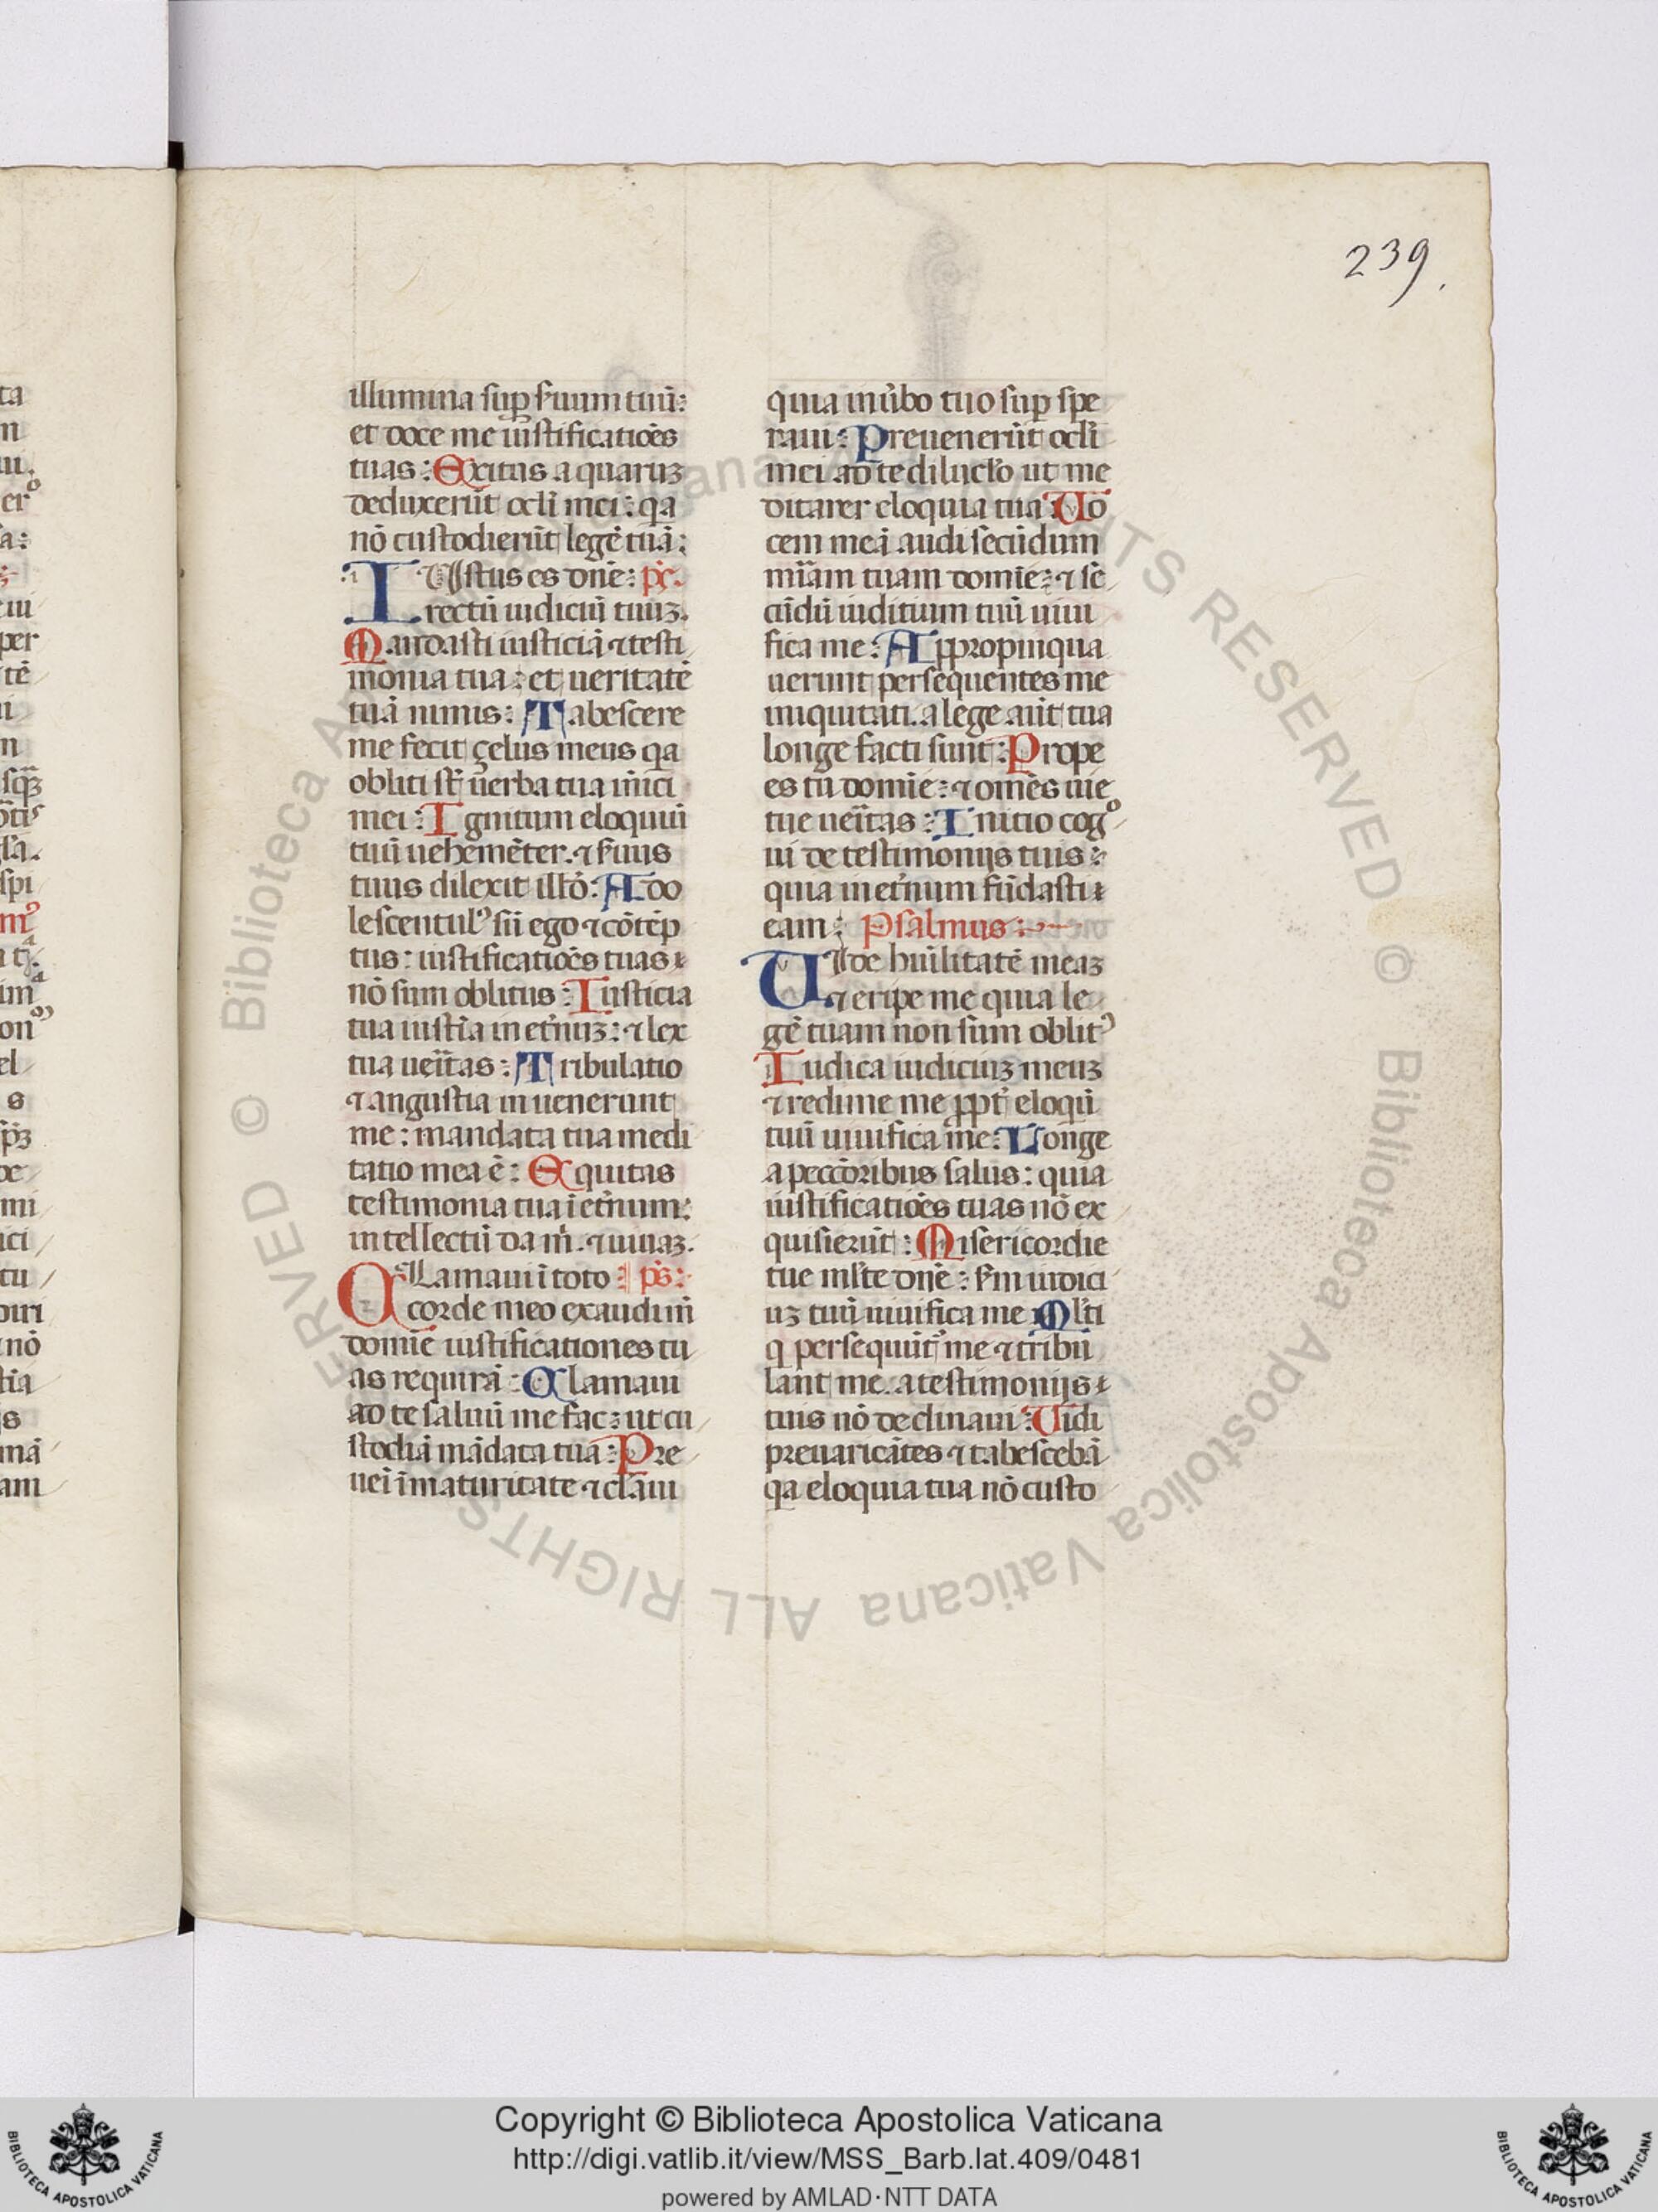 239.
illumina suꝑ ẜuum tuū:
et doce me iustificatiōes
tuas: Exitus aquaruꝫ
deduxerūt ocłi mei: qꝛa
nō custodierūt legē tuā:
IUstus es dn̄e: pͣs.
rectū iudiciū tuuꝫ.
Mandasti iusticiā ⁊ testi
monia tua: et ueritatē
tuā nimis: Tabescere
me fecit çelus meus qꝛa
obliti st̄ uerba tua inīci
mei: Ignitum eloquiū
tuū uehemēter. ⁊ ẜuus
tuus dilexit illđ: Ado
lescentulꝰ sū ego ⁊ cōtēp
tus: iustificatiōes tuas
nō sum oblitus: Iusticia
tua iustīa in et̄nuꝫ: ⁊ lex
tua uēitas: Tribulatio
⁊ angustia inuenerunt
me: mandata tua medi
tatio mea ē: Equitas
testimonia tua ī et̄num:
intellectū da m̍. ⁊ uiuaꝫ.
CLamaui ī toto pͣs:
corde meo exaudi m̄
domīe iustificationes tu
as requirā: Clamaui
ad te saluū me fac: ut cu
stodiā mādata tua: Pre
uēi ī maturitate ⁊ clāui
quia in ūbo tuo suꝑ spe
raui: Preuenerūt ocłi
mei ad te dilucło ut me
ditarer eloquia tua: Uo
cem meā audi secūdum
mīam tuam domīe: ⁊ sē
cūdū iuditium tuū uiui
fica me: Appropinqua
uerunt persequentes me
iniquitati. a lege aūt tua
longe facti sunt: Prope
es tu domīe: ⁊ omēs uie
tue uēitas: Initio cogͦ
ui de testimonijs tuis:
quia in et̄num fūdasti
eam: Psalmus:
UIde huīlitatē meaꝫ
⁊ eripe me quia le
gē tuam non sum oblitꝰ
Iudica iudiciuꝫ meuꝫ
⁊ redime me ꝓpt̄ eloqū
tuū uiuifica me: Longe
a peccōribus salus: quia
iustificatiōes tuas nō ex
quisierūt: Misericordie
tue młte dn̄e: ẜm iudici
uꝫ tuū uiuifica me Młti
q persequūt᷑ me ⁊ tribu
lant me. a testimonijs
tuis nō declinaui: Uidi
preuaricātes ⁊ tabescebā
qꝛa eloquia tua nō custo
Copyright © Biblioteca Apostolica Vaticana
http://digi.vatlib.it/view/MSS_Barb.lat.409/0481
powered by AMLAD·NTT DATA